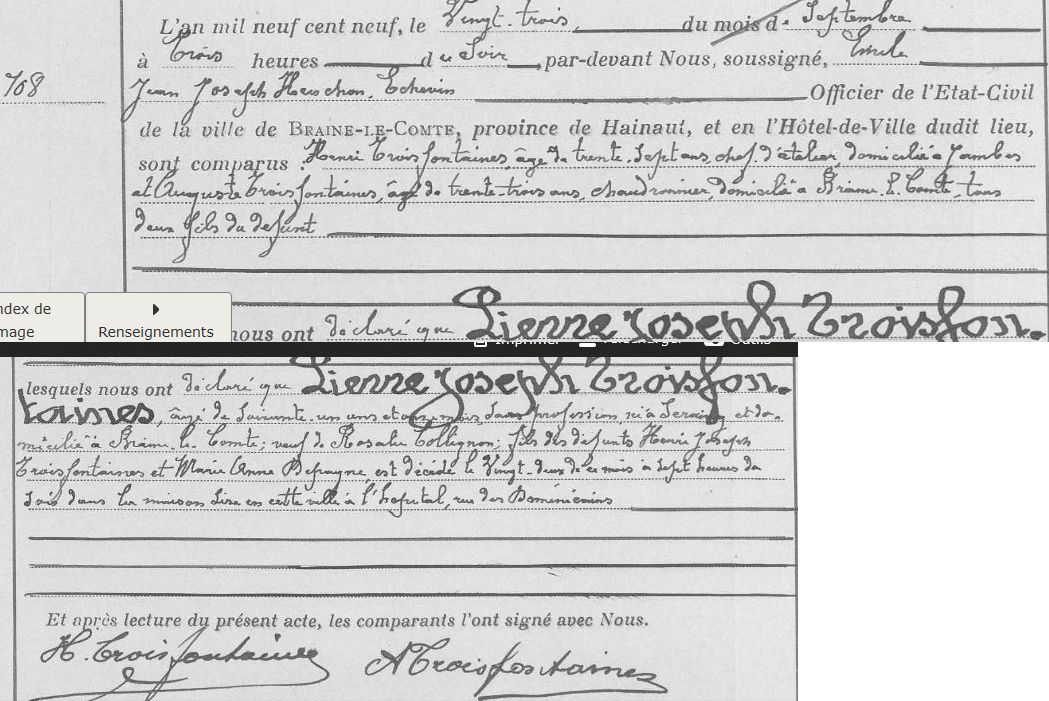 L'an mil neuf cent neuf, le Vingt-trois du mois de Septembre
à Trois heures du Soir, par-devant Nous, soussigné, Emile
768
Jean Joseph Herchon, Echevin Officier de l'Etat-Civil
de la ville de BRAINE-LE-COMTE, province de Hainaut, et en l'Hôtel-de-Ville dudit lieu,
sont comparus : Henri Troisfontaines âgé de trente-sept ans, chef d'atelier, domicilié à Jambes
et Auguste Troisfontaines, âgé de trente-trois ans, chaudronnier, domicilié à Braine-le-Comte, tous
deux fils du défunt
ndex de
mage
Renseignements
nous ont déclaré que Lienne Joseph Troisfon-
lesquels nous ont déclaré que Lienne Joseph Troisfon-
taines, âgé de soixante-un ans et onze mois, sans profession, né à Seraing et do-
micilié à Braine-le-Comte; veuf de Rosalie Collignon; fils des défunts Henri Joseph
Troisfontaines et Marie Anne, est décédé le Vingt-deux de ce mois à sept heures du
soir dans la maison sise en cette ville à l'hopital, rue des Dominicains
Et après lecture du présent acte, les comparants l'ont signé avec Nous.
H. Troisfontaines A Troisfontaines